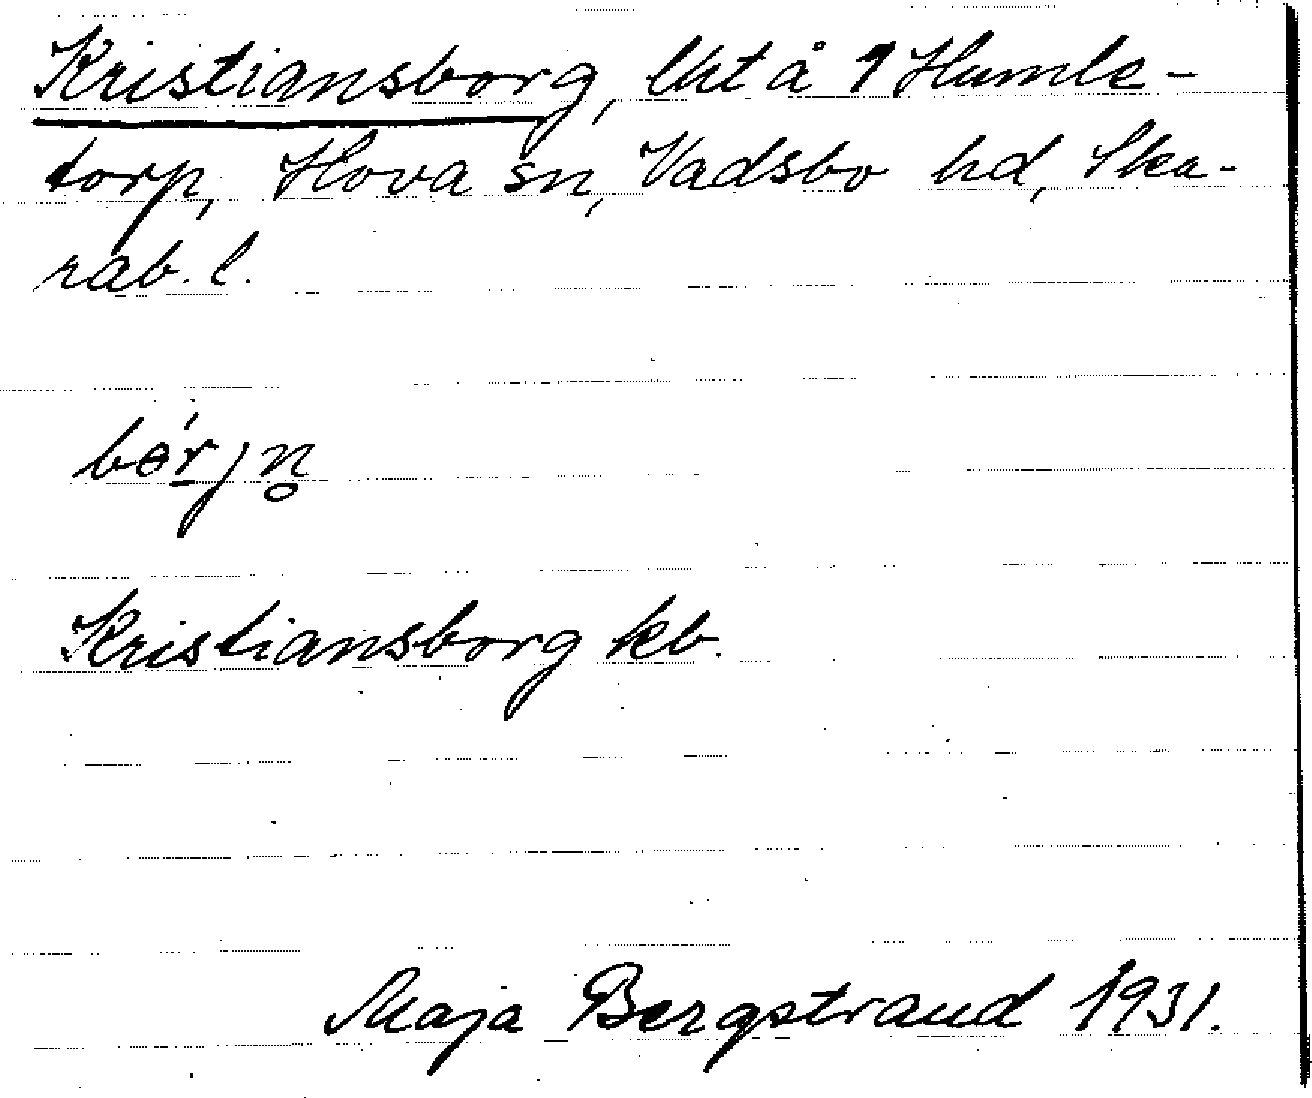 Kristiansborg, lht å 1 Humle-
torp, Hova sn, Vadsbo hd, Ska-
rab. l.
Kristiansborg kb.
Maja Bergstrand 1931.